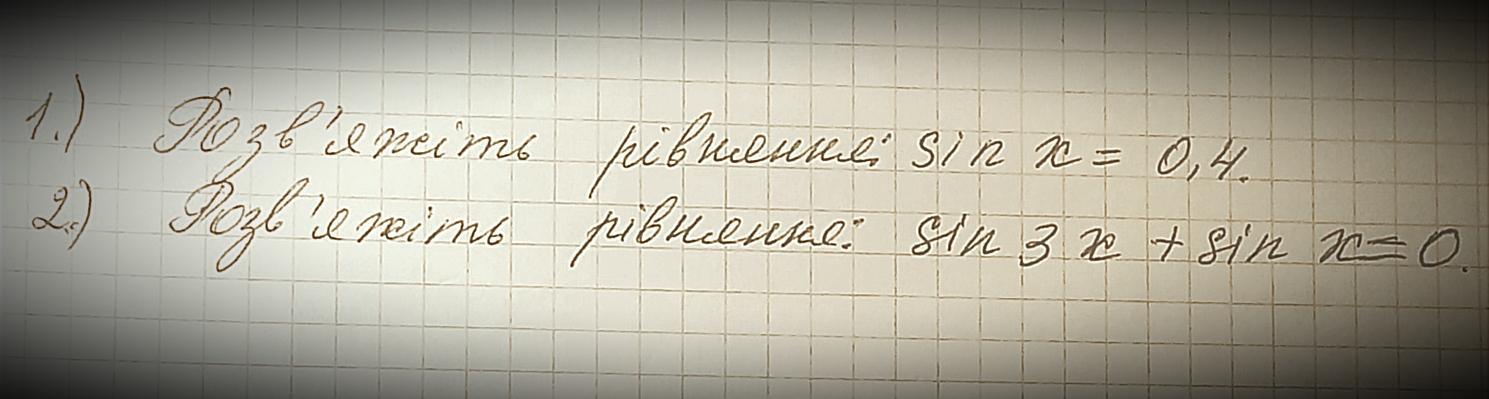 1.) Розв'яжіть рівняння: sin x = 0,4.
2.) Розв'яжіть рівняння: sin 3x + sin x = 0.